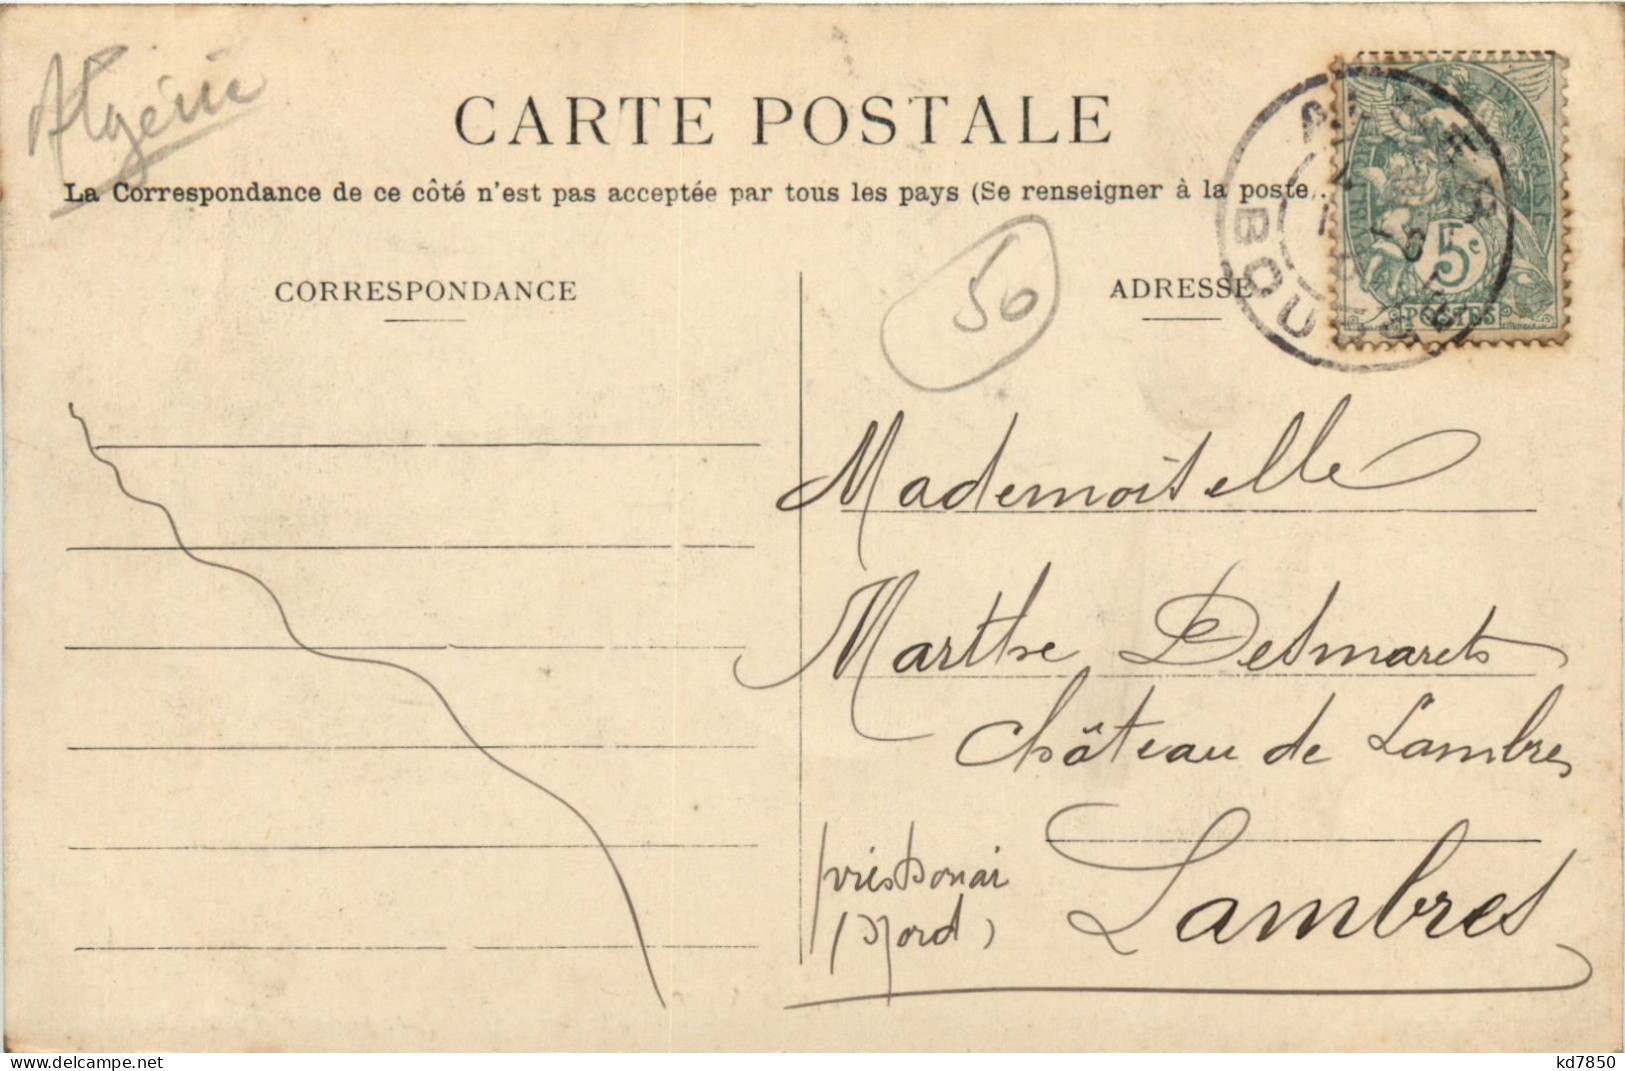 Algérie
CARTE POSTALE
La Correspondance de ce côté n'est pas acceptée par tous les pays (Se renseigner à la poste.
CORRESPONDANCE
50
ADRESSE
5c
POSTES
ALGER
BOU
Mademoiselle
Marthe Desmarets
Château de Lambres
près Douai
(Nord)
Lambres
delcampe.net
kd7850